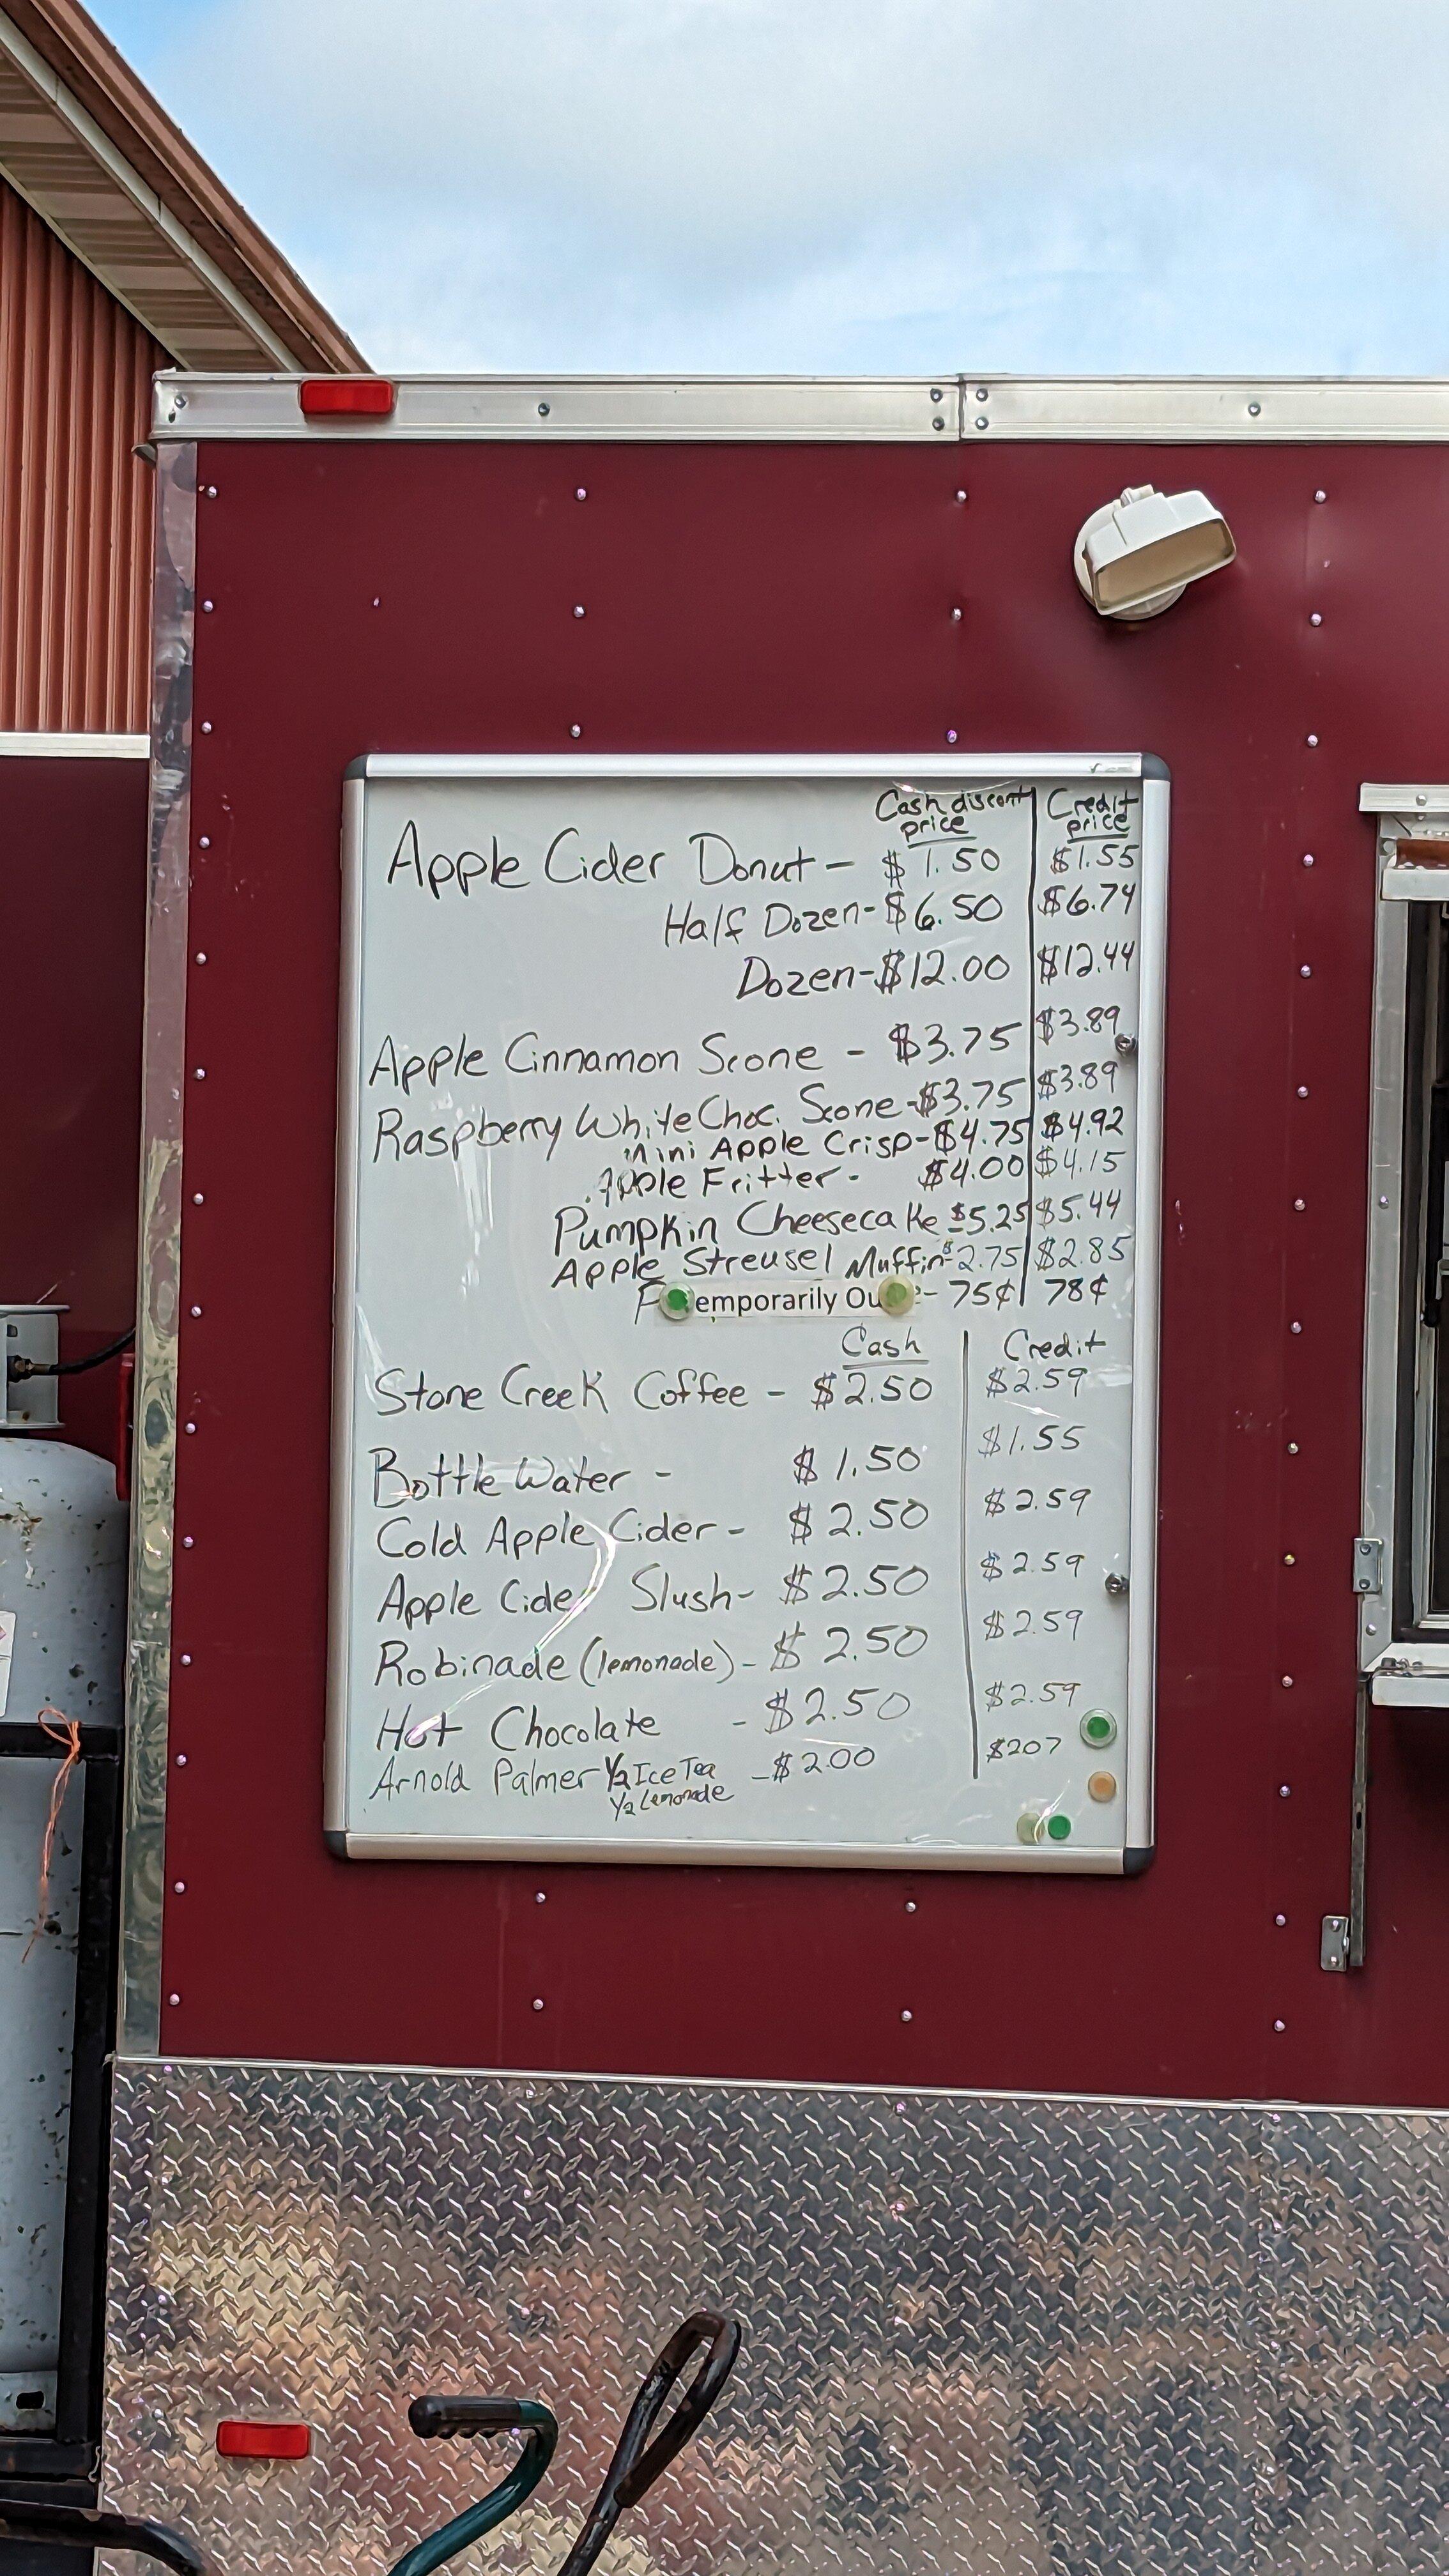 Cash discont | Credit
price | price
Apple Cider Donut - $1.50 | $1.55
Half Dozen - $6.50 | $6.74
Dozen - $12.00 | $12.44
Apple Cinnamon Scone - $3.75 | $3.89
Raspberry White Choc. Scone - $3.75 | $3.89
Mini Apple Crisp - $4.75 | $4.92
Apple Fritter - $4.00 | $4.15
Pumpkin Cheesecake $5.25 | $5.44
Apple Streusel Muffin - $2.75 | $2.85
emporarily Ou - 75¢ | 78¢
Cash | Credit
Stone Creek Coffee - $2.50 | $2.59
Bottle Water - $1.50 | $1.55
Cold Apple Cider - $2.50 | $2.59
Apple Cider Slush - $2.50 | $2.59
Robinade (lemonade) - $2.50 | $2.59
Hot Chocolate - $2.50 | $2.59
Arnold Palmer 1/2 Ice Tea - $2.00 | $207
1/2 Lemonade